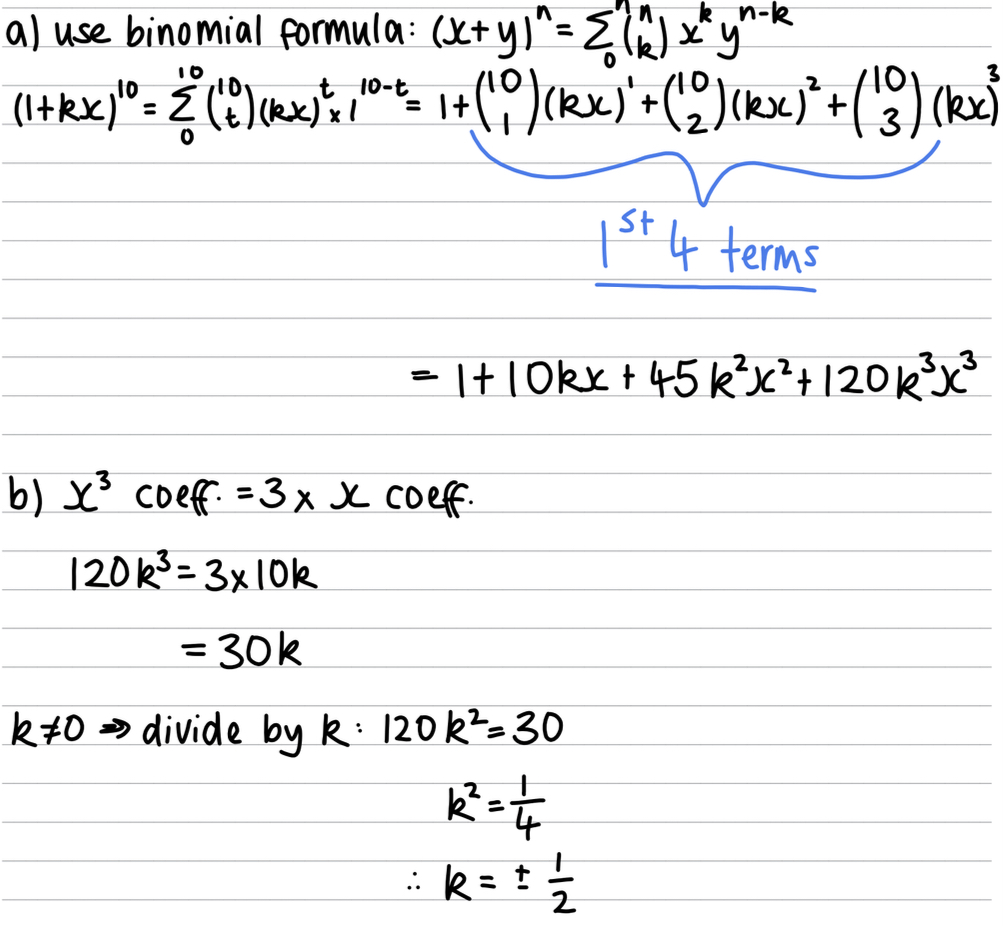 a) use binomial formula: (x+y)^n = Σ_0^n (n k) x^k y^{n-k}
(1+kx)^10 = Σ_0^10 (10 t)(kx)^t × 1^{10-t} = 1+(10 1)(kx)^1+(10 2)(kx)^2+(10 3)(kx)^3
1st 4 terms
= 1+10kx+45k²x²+120k³x³
b) x³ coeff. = 3 × x coeff.
120k³ = 3×10k
= 30k
k≠0 ⇒ divide by k: 120k² = 30
k² = 1/4
∴ k = ± 1/2